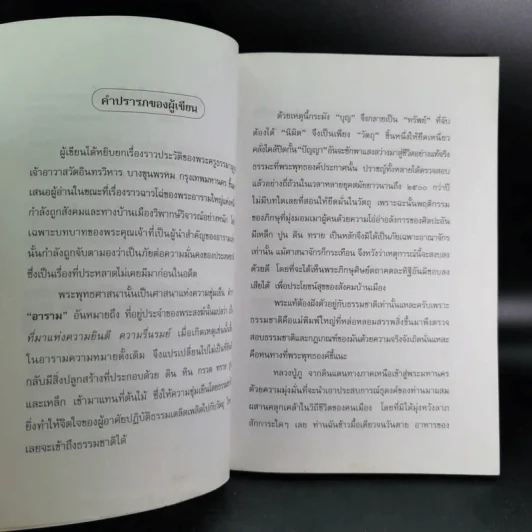 คำปรารภของผู้เขียน
ผู้เขียนได้หยิบยกเรื่องราวประวัติของพระครูธรรมา
เจ้าอาวาสวัดอินทรวิหาร บางขุนพรหม กรุงเทพมหานคร ขึ้น
เสนอผู้อ่านในขณะที่เรื่องราวฉาวโฉ่ของพระอารามใหญ่แห่ง
กำลังถูกสังคมและทางบ้านเมืองวิพากษ์วิจารณ์อย่างหนัก โดย
เฉพาะบทบาทของพระคุณเจ้าที่เป็นผู้นำสำคัญของอาราม
นั้นกำลังถูกจับตามองว่าเป็นภัยต่อความมั่นคงของประเทศ
ซึ่งเป็นเรื่องที่ประหลาดไม่เคยมีมาก่อนในอดีต
พระพุทธศาสนานั้นเป็นศาสนาแห่งความชุ่มเย็น
“อาราม” อันหมายถึง ที่อยู่ประจำของพระสงฆ์นั้นแปลว่า
ที่มาแห่งความยินดี ความรื่นรมย์ เมื่อเกิดเหตุเช่นนั้น
ในอารามความหมายดั้งเดิม จึงแปรเปลี่ยนไปไม่เป็น
กลับมีสิ่งปลูกสร้างที่ประกอบด้วย ดิน หิน กรวด ทราย
และเหล็ก เข้ามาแทนที่ต้นไม้ ซึ่งให้ความชุ่มเย็นโดยธรรม
ยิ่งทำให้จิตใจของผู้อาศัยปฏิบัติธรรมเตลิดเพลิดไปกับวัตถุ
เลยจะเข้าถึงธรรมชาติได้
ด้วยเหตุนี้กระมัง “บุญ” จึงกลายเป็น “ทรัพย์” ที่จับ
ต้องได้ “นิมิต” จึงเป็นเพียง “วัตถุ” ชิ้นหนึ่งให้ยึดเหนี่ยว
คลั่งไคล้ปิดกั้น “ปัญญา” อันจะชักพาแสงสว่างมาสู่ชีวิตอย่างแท้จริง
ธรรมะที่พระพุทธองค์ประกาศนั้น ปราชญ์ทั้งหลายได้ตรวจสอบ
แล้วอย่างถี่ถ้วนในเวลาหลายยุคสมัยยาวนานถึง ๒๕๐๐ กว่าปี
ไม่มีบทใดเลยที่สอนให้ยึดมั่นในวัตถุ เพราะฉะนั้นพฤติกรรม
ของภิกษุที่มุ่งมอมเมาผู้คนด้วยความโอ่อ่าอลังการของศิลปะอัน
มีเหล็ก ปูน ดิน ทราย เป็นหลักจึงมิได้เป็นภัยเฉพาะอาณาจักร
เท่านั้น แม้ศาสนจักรก็กระเทือน จึงหวังว่าเหตุการณ์นี้จะสงบลง
ด้วยดี โดยที่จะได้เห็นพระภิกษุศิษย์ตถาคตละทิฐิอันมิชอบลง
เสียได้ เพื่อประโยชน์สุขของสังคมบ้านเมือง
พระแท้ต้องฝังตัวอยู่กับธรรมชาติเท่านั้นแหละครับเพราะ
ธรรมชาติคือแม่พิมพ์ใหญ่ที่หล่อหลอมสรรพสิ่งขึ้นมาพึงตรวจ
สอบธรรมชาติและกฎเกณฑ์ของมันด้วยความจริงจังเถิดนั่นแหละ
คือหนทางที่พระพุทธองค์ชี้แนะ
หลวงปู่ภู จากดินแดนทางภาคเหนือเข้าสู่พระมหานคร
ด้วยความมุ่งมั่นที่จะนำเอาประสบการณ์ธุดงค์ของท่านมาผสม
ผสานคลุกเคล้าในวิถีชีวิตของคนเมือง โดยที่มิได้มุ่งหวังลาภ
สักการะใดๆ เลย ท่านฉันข้าวมื้อเดียวจนวันตาย อาหารของ